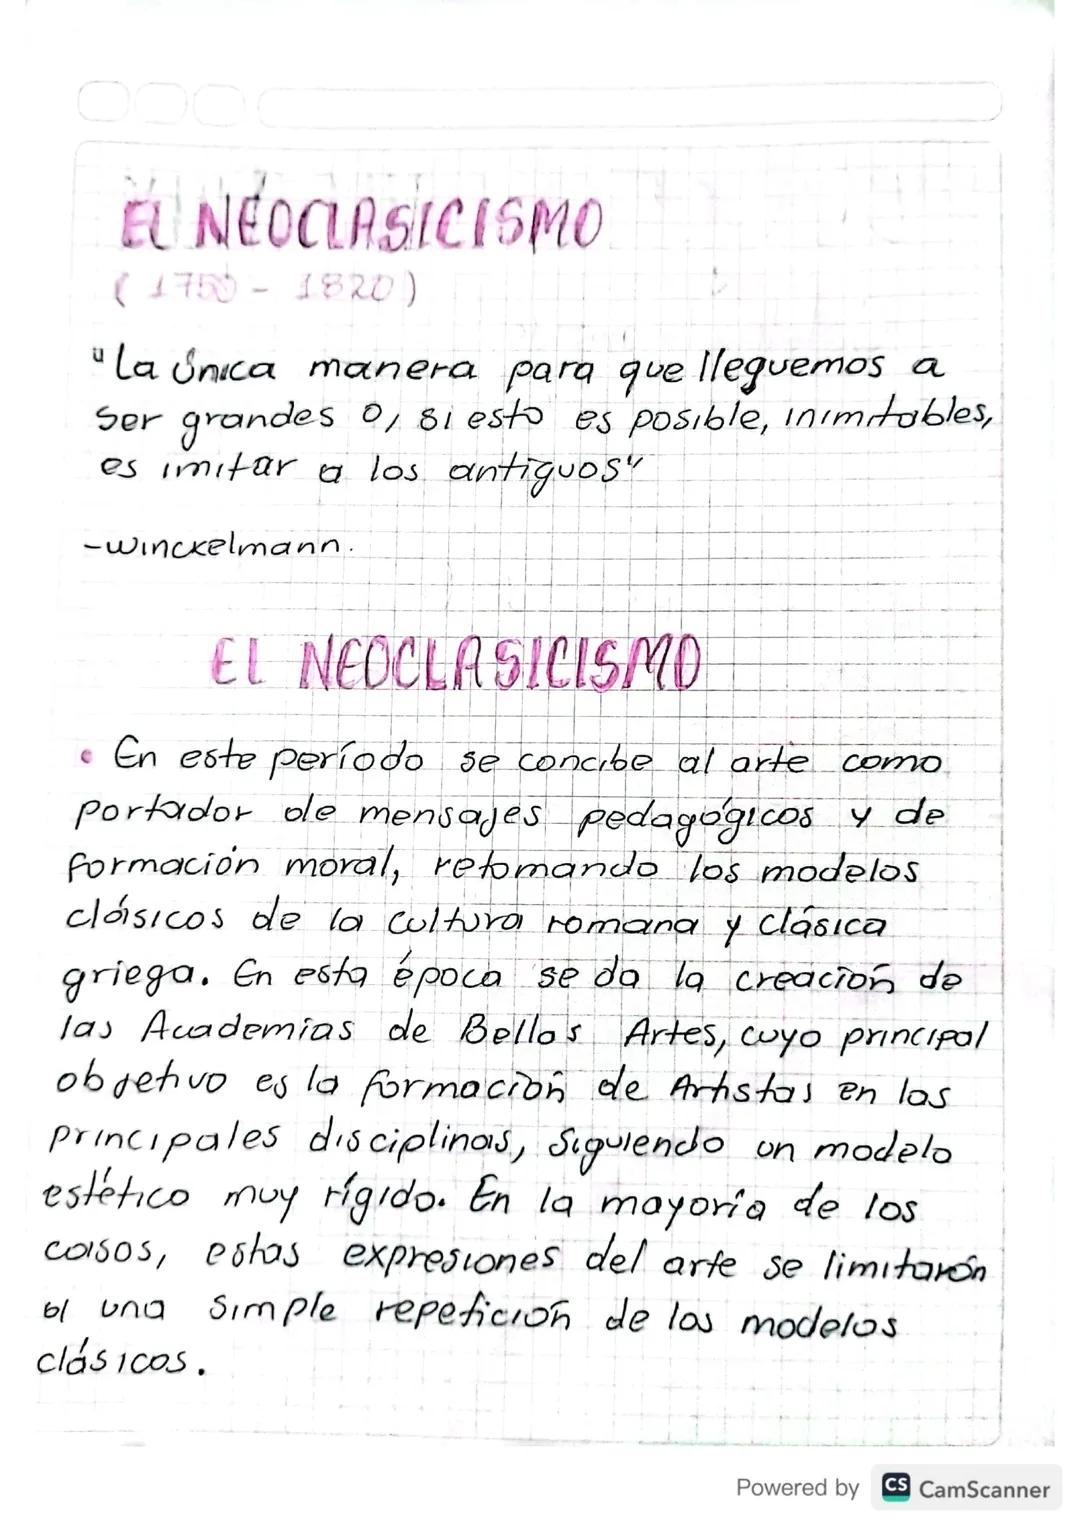 EL NEOCLASICISMO
( 1750 - 1820 )
"La única manera para que lleguemos a
ser grandes o, si esto es posible, inimitables,
es imitar a los antiguos"
-Winckelmann.
EL NEOCLASICISMO
• En este período se concibe al arte como
portador de mensajes pedagógicos y de
formación moral, retomando los modelos
clásicos de la cultura romana y clásica
griega. En esta época se da la creación de
las Academias de Bellas Artes, cuyo principal
objetivo es la formación de Artistas en las
principales disciplinas, siguiendo un modelo
estético muy rígido. En la mayoría de los
casos, estas expresiones del arte se limitarón
a una simple repetición de los modelos
clásicos.
Powered by CS CamScanner